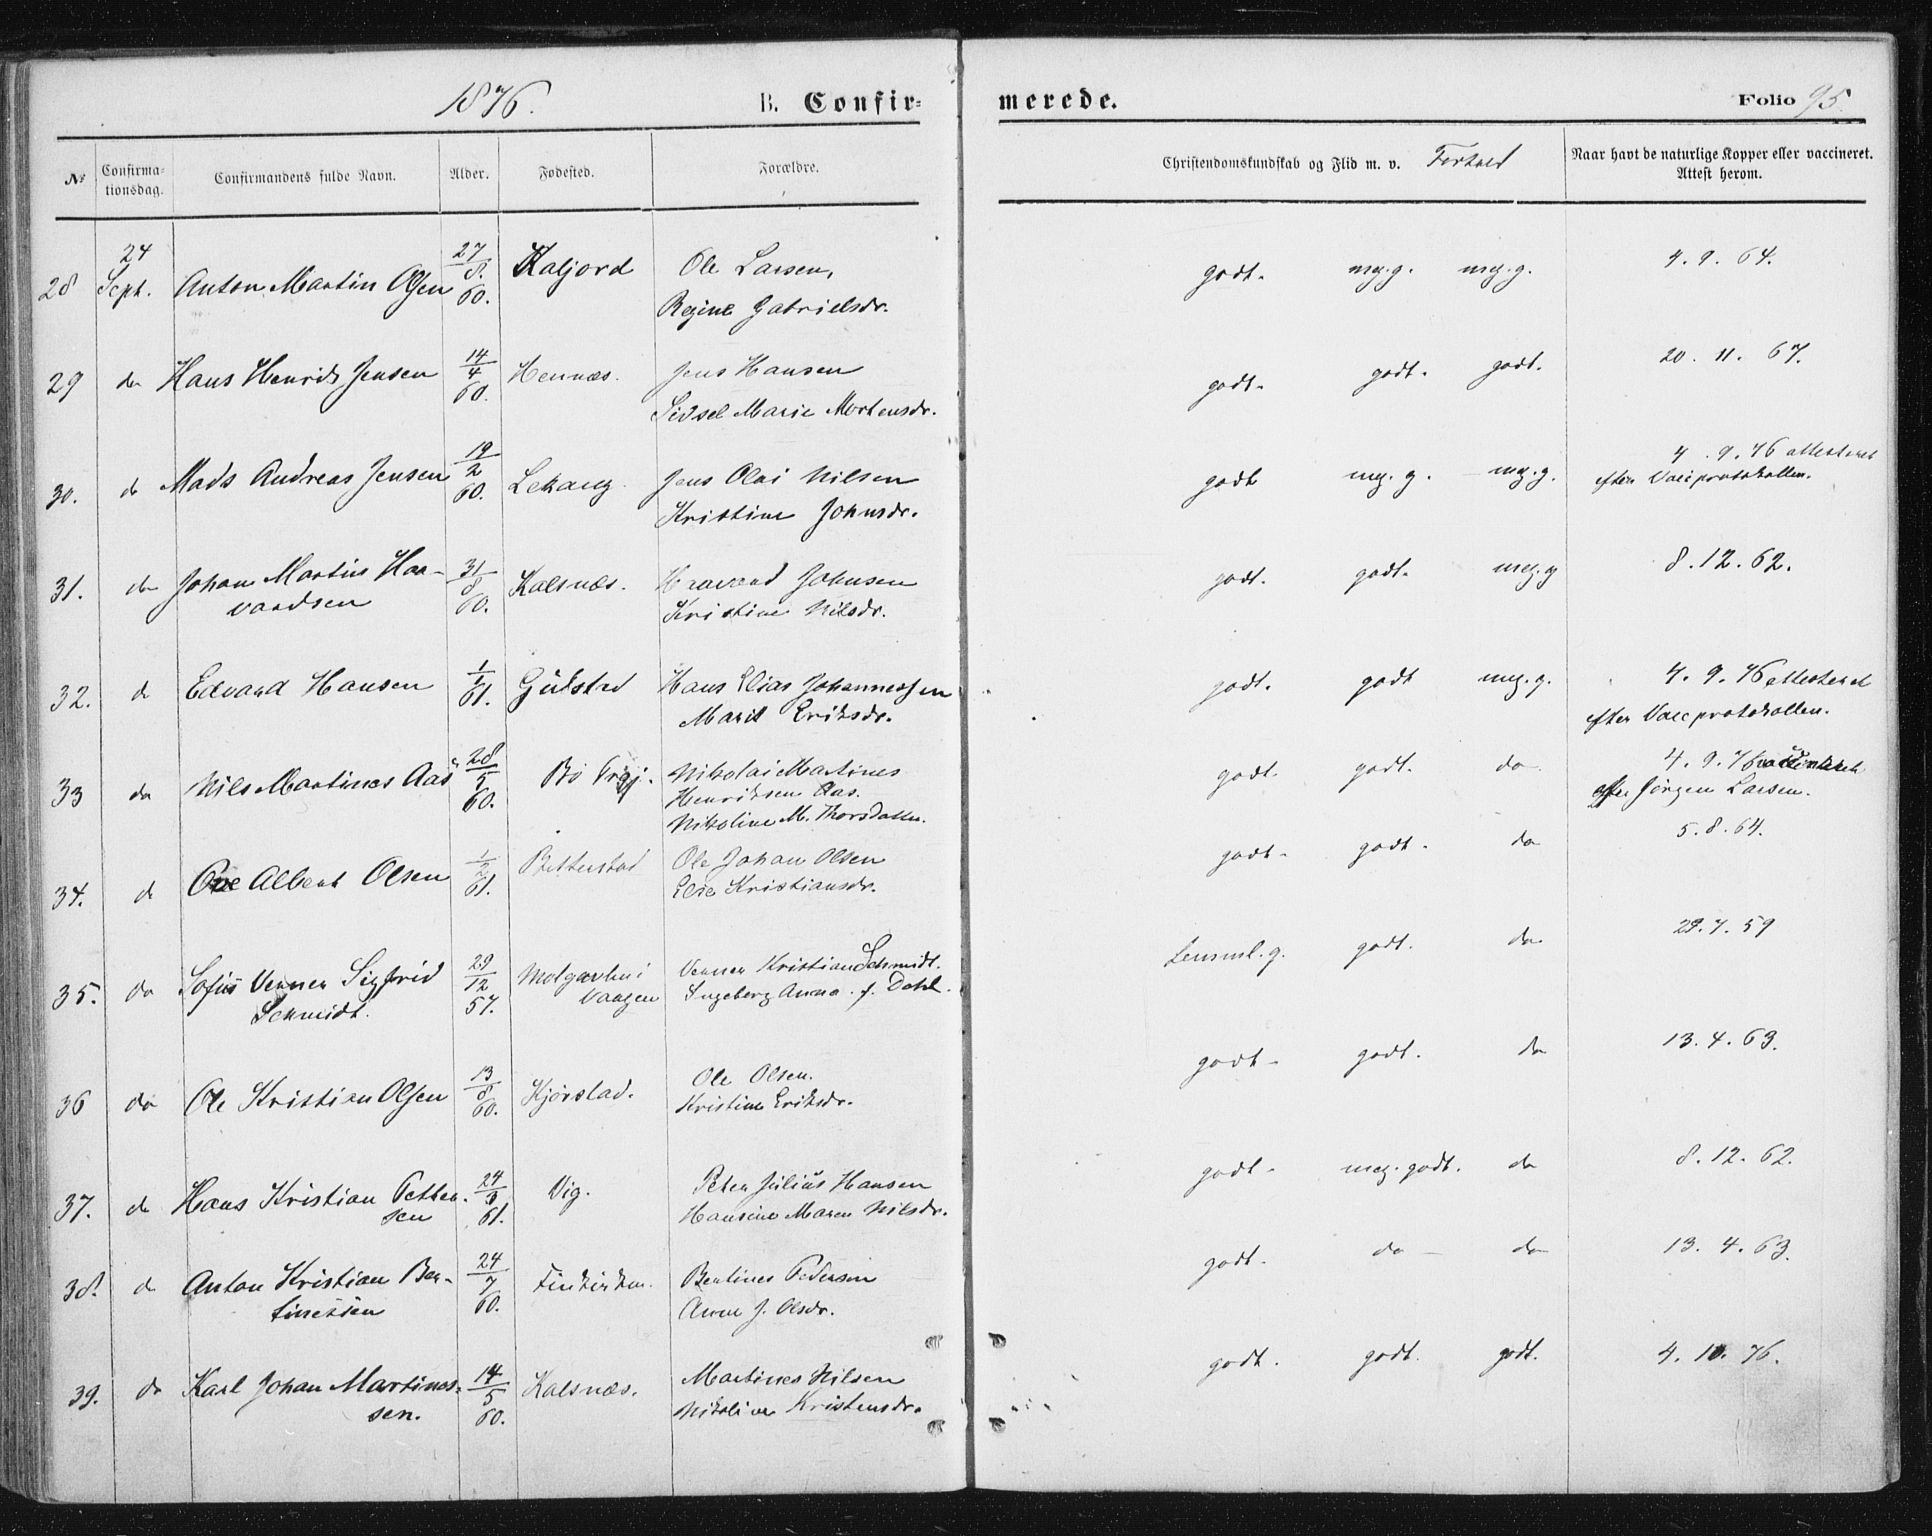 1876. B. Confir=
merede. Folio 95.
No Confirma-tionsdag. Confirmandens fulde Navn. Alder. Fødested. Forældre. Christendomskundskab og Flid m. v. Forhold Naar havt de naturlige Kopper eller vaccineret. Attest herom.
28 24 Sept. Anton Martin Olsen 27/8. 60. Kaljord Ole Larsen, godt. mg. g. mg. g. 4. 9. 64.
Regine Gabrielsdr.
29 do Hans Henrik Jensen 14/4 60. Hennæs. Jens Hansen godt. godt. godt. 20. 11. 67.
Sidsel Marie Mortensdr.
30. do Mads Andreas Jensen 19/2 60. Lekang. Jens Olai Nilsen godt meg. g. mg. g. 4. 9. 76 attesteret
Kristine Johnsdr. efter Vacc protokollen.
31. do Johan Martin Haa- 31/8 60. Kalsnæs. Haavard Johnsen godt. godt. meg. g 8. 12. 62.
vardsen Kristine Nilsdr.
32. do Edvard Hansen 1/1 61. Gulstad Hans Elias Johannessen godt. godt meg. g. 4. 9. 76 attesteret
Marit Eriksdr. efter Vacc protokollen.
33 do Nils Martines Aas 28/5 60. Bø Nikolai Martines godt. godt. do 4. 9. 76
Henriksen Aas. Jørgen Larsen.
Nikoline M. Thorsdatter.
34. do Ove Albert Olsen 1/2 61. Ole Johan Olsen godt. godt. do 5. 8. 64.
Elie Kristiansdr.
35. do Sofus Verner Sigfrid 29/12 57. Verner Kristian Schmidt. temml. g. godt. do 29. 7. 59
Schmidt. vaagen Ingeberg Anna f. Dahl.
36 do Ole Kristian Olsen 13/8 60. Kjørstad. Ole Olsen. godt godt. do 13. 4. 63.
Kristine Eriksdr.
37. do Hans Kristian Petter- 24/ 61. Vig. Peter Julius Hansen godt meg. godt. do 8. 12. 62.
sen Hansine Maren Nilsdr.
38. do Anton Kristian Ber- 24/7 60. Bertines Pedersen godt. do do 13. 4. 63.
tinessen Anne J. Olsdr.
39. do Karl Johan Martines- 14/5 60. Kalsnæs. Martines Nilsen godt. godt. godt. 4. 10. 76.
sen. Nikoline Kristensdr.